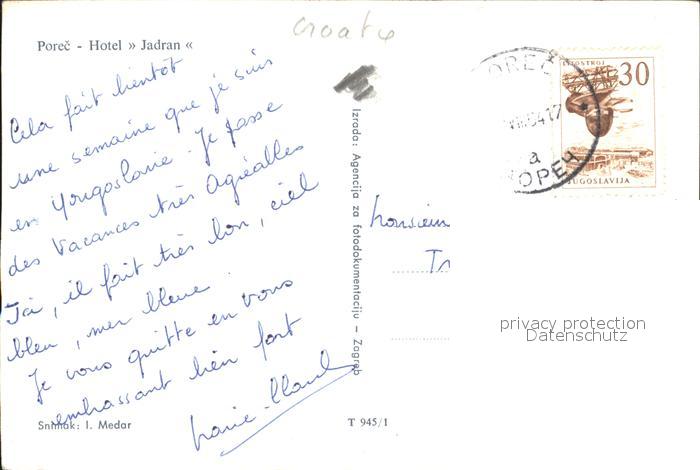 croatie
Poreč - Hotel » Jadran «
Cela fait bientôt
une semaine que je suis
en Yougoslavie. Je passe
des vacances très agréalles
Ici, il fait très bon, ciel
bleu, mer bleue.
Je vous quitte en vous
embrassant bien fort
Marie-Claude
Snimak: I. Medar
Izrada: Agencija za fotodokumentaciju – Zagreb
T 945/1
POREČ
VIII.64 17
a
ПОРЕЧ
LITOSTROJ
30
JUGOSLAVIJA
Monsieur
Tr
privacy protection
Datenschutz